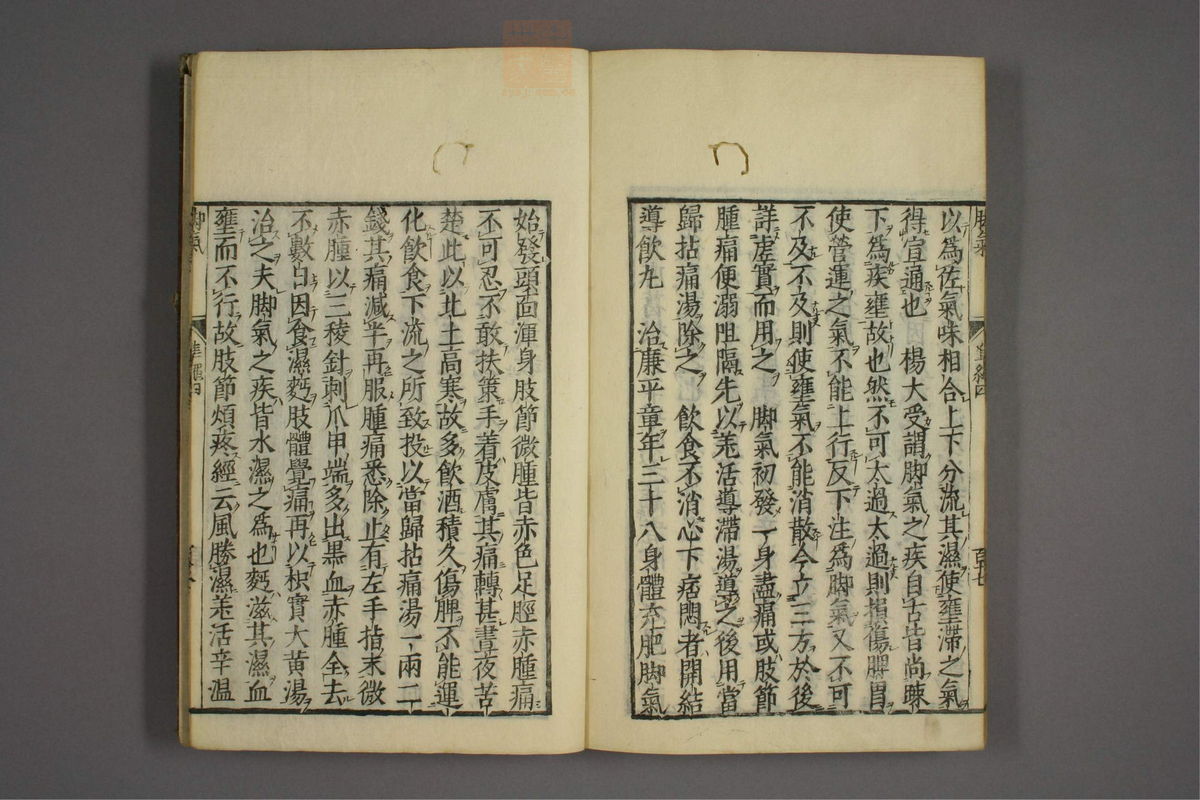 脚氣 準繩四 百七
以爲佐氣味相合上下分流其濕使壅滯之氣
得宣通也 楊大受謂脚氣之疾自古皆尚踈
下爲疾壅故也然不可太過太過則損傷脾胃
使營運之氣不能上行反下注爲脚氣又不可
不及不及則使壅氣不能消散今立三方於後
詳虛實而用之 脚氣初發一身盡痛或肢節
腫痛便溺阻隔先以羌活導滯湯導之後用當
歸拈痛湯除之 飲食不消心下痞悶者開結
導飲丸 治廉平章年三十八身體充肥脚氣
始發頭面渾身肢節微腫皆赤色足脛赤腫痛
不可忍不敢扶策手着皮膚其痛轉甚晝夜苦
楚此以北土高寒故多飲酒積久傷脾不能運
化飲食下流之所致投以當歸拈痛湯一兩二
錢其痛減半再服腫痛悉除止有左手指末微
赤腫以三稜針刺爪甲端多出黒血赤腫全去
不數日因食濕麪肢體覺痛再以枳實大黄湯
治之夫脚氣之疾皆水濕之爲也麪滋其濕血
壅而不行故肢節煩疼經云風勝濕羌活辛温
脚氣 準繩四